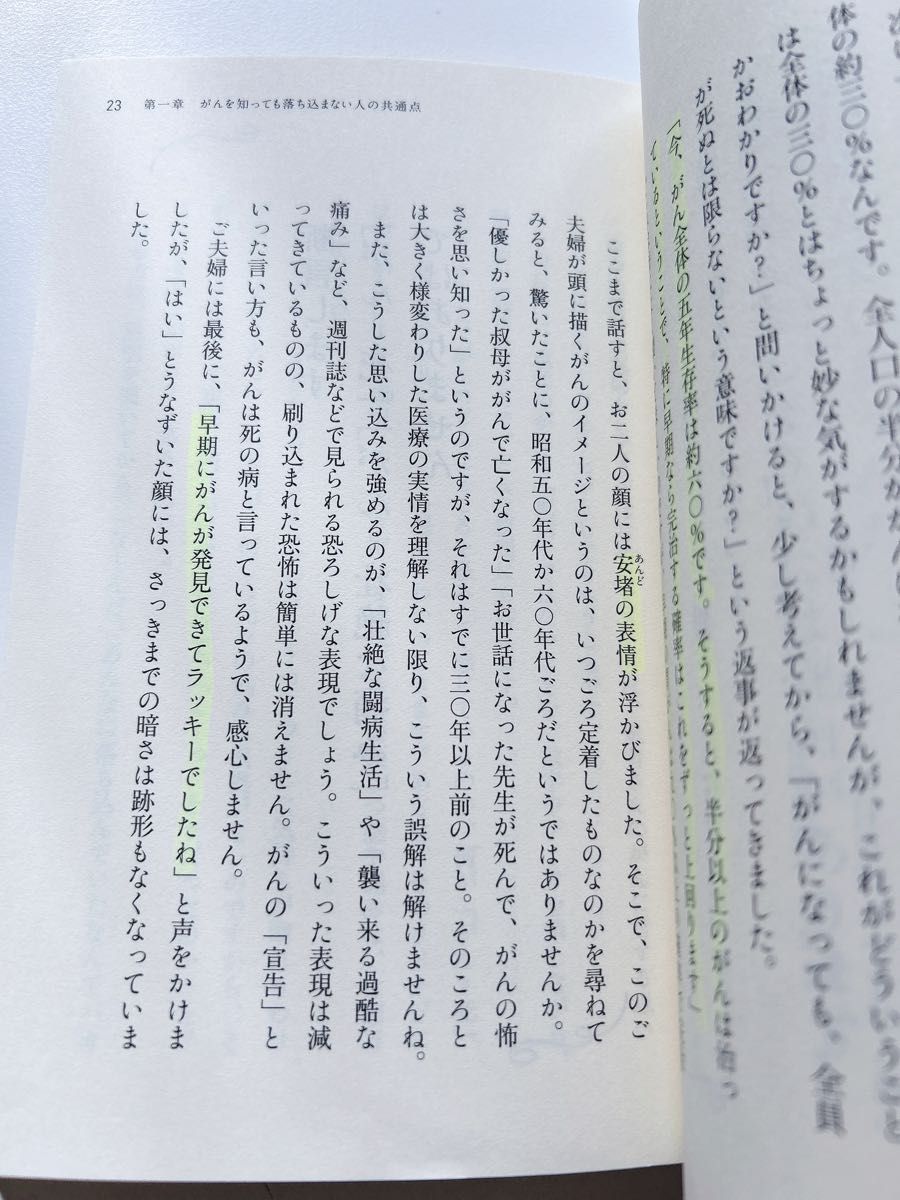 体の約三〇%なんです。全人口の半分ががん
は全体の三〇%とはちょっと妙な気がするかもしれませんが、これがどういうこと
かおわかりですか?」と問いかけると、少し考えてから、「がんになっても、全員
が死ぬとは限らないという意味ですか?」という返事が返ってきました。
「今、がん全体の五年生存率は約六〇%です。そうすると、半分以上のがんは治っ
ているということで、特に早期なら完治する確率はこれをずっと上回ります」
23 第一章 がんを知っても落ち込まない人の共通点
ここまで話すと、お二人の顔には安堵の表情が浮かびました。そこで、このご
あんど
夫婦が頭に描くがんのイメージというのは、いつごろ定着したものなのかを尋ねて
みると、驚いたことに、昭和五〇年代か六〇年代ごろだというではありませんか。
「優しかった叔母ががんで亡くなった」「お世話になった先生が死んで、がんの怖
さを思い知った」というのですが、それはすでに三〇年以上前のこと。そのころと
は大きく様変わりした医療の実情を理解しない限り、こういう誤解は解けませんね。
また、こうした思い込みを強めるのが、「壮絶な闘病生活」や「襲い来る過酷な
痛み」など、週刊誌などで見られる恐ろしげな表現でしょう。こういった表現は減
ってきているものの、刷り込まれた恐怖は簡単には消えません。がんの「宣告」と
いった言い方も、がんは死の病と言っているようで、感心しません。
ご夫婦には最後に、「早期にがんが発見できてラッキーでしたね」と声をかけま
したが、「はい」とうなずいた顔には、さっきまでの暗さは跡形もなくなっていま
した。